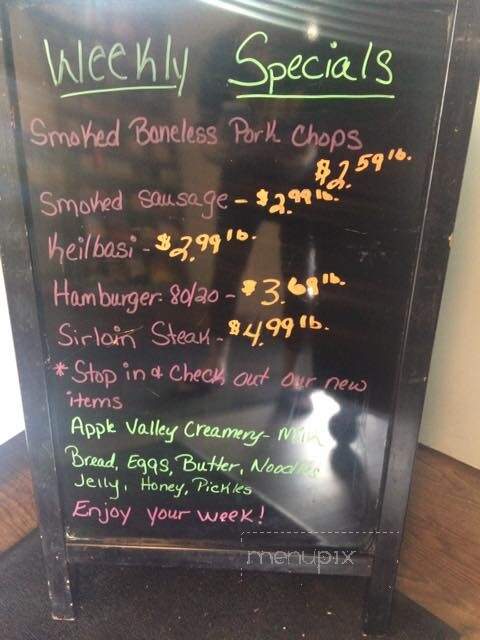 Weekly Specials
Smoked Boneless Pork Chops
$2.59 lb.
Smoked sausage - $2.99 lb.
Keilbasi - $2.99 lb.
Hamburger 80/20 - $3.69 lb.
Sirloin Steak - $4.99 lb.
* Stop in & Check out our new
items
Apple Valley Creamery - Milk
Bread, Eggs, Butter, Noodles
Jelly, Honey, Pickles
Enjoy your week!
menupix